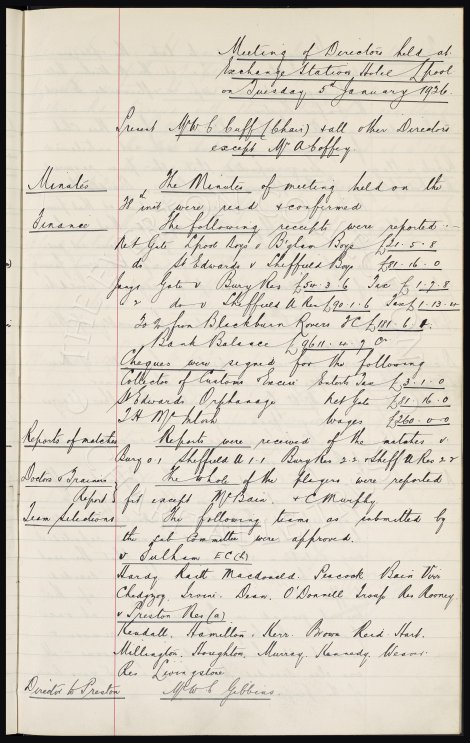 Meeting of Directors held at
Exchange Station Hotel L'pool
on Tuesday, 5th January 1926.
Present Mr W C Cuff (Chair) & all other Directors
except Mr A Coffey.
Minutes The Minutes of meeting held on the
ult inst were read & confirmed
Finance The following receipts were reported :-
Net Gate L'pool Boys v B'ham Boys £21.5.8
do St Edwards v Sheffield Boys £81.16.0
Gate v Bury Res £54.3.6 Tax £1.7.8
do v Sheffield A Res £90.1.6 Tax £1.13.4
from Blackburn Rovers FC £181.6.
Bank Balance £9611.4.7
Cheques were signed for the following
Collector of Customs Excise Entert Tax £3.1.0
St Edwards Orphanage Net Gate £81.16.0
T H McIntosh Wages £260.0.0
Reports of matches Reports were received of the matches v
Bury 0.1 Sheffield U 1.1 Bury Res 2.2 v Sheff U Res 2.2
Doctors & Trainers The whole of the players were reported
Report fit except McBain & C Murphy
Team Selections The following teams as submitted by
the sub Committee were approved.
v Fulham EC (h)
Hardy Raitt Macdonald. Peacock Bain Virr
Chedgzoy. Irvine. Dean. O'Donnell Troup Res Rooney
v Preston Res (a)
Kendall. Hamilton. Kerr. Brown Reid. Hart.
Millington, Houghton, Murray, Kennedy, Weaver.
Res. Livingstone
Director to Preston Mr W C Gibbins.